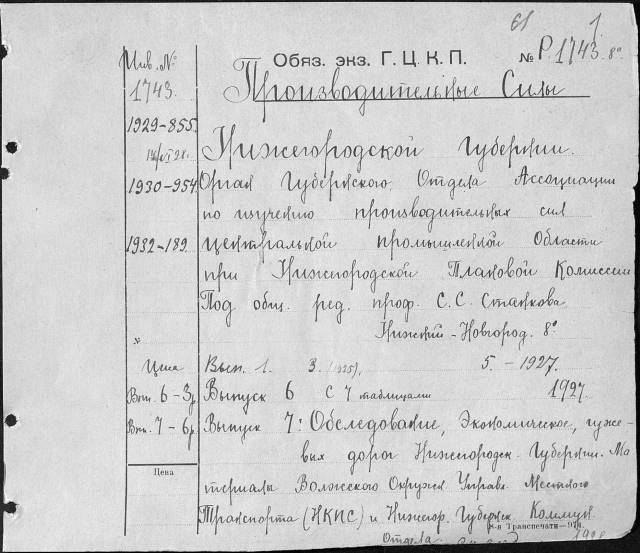 61 1
Обяз. экз. Г. Ц. К. П. № Р. 1743 8°
Инв. №
1743.
Производительные Силы
1929-855.
Нижегородской Губернии.
1930-954
Орган Губернского Отдела Ассоциации
по изучению производительных сил
1932-189
центральной промышленной Области
при Нижегородской Плановой Комиссии
Под общ. ред. проф. С. С. Станкова
Нижний-Новгород. 8°
№
Цена
Вып. 1. 3. (1925). 5. - 1927.
Вып. 6 - 3р
Выпуск 6 с 4 таблицами 1927
Вып. 7 - 6р
Выпуск 7: Обследование, Экономическое, гуже-
вых дорог Нижегородск. Губернии. Ма
Цена
териалы Волжского Окружн. Управл. Местного
Транспорта (НКПС) и Нижегор. Губернск. Коммун
8-я Транспечати—
Отдела